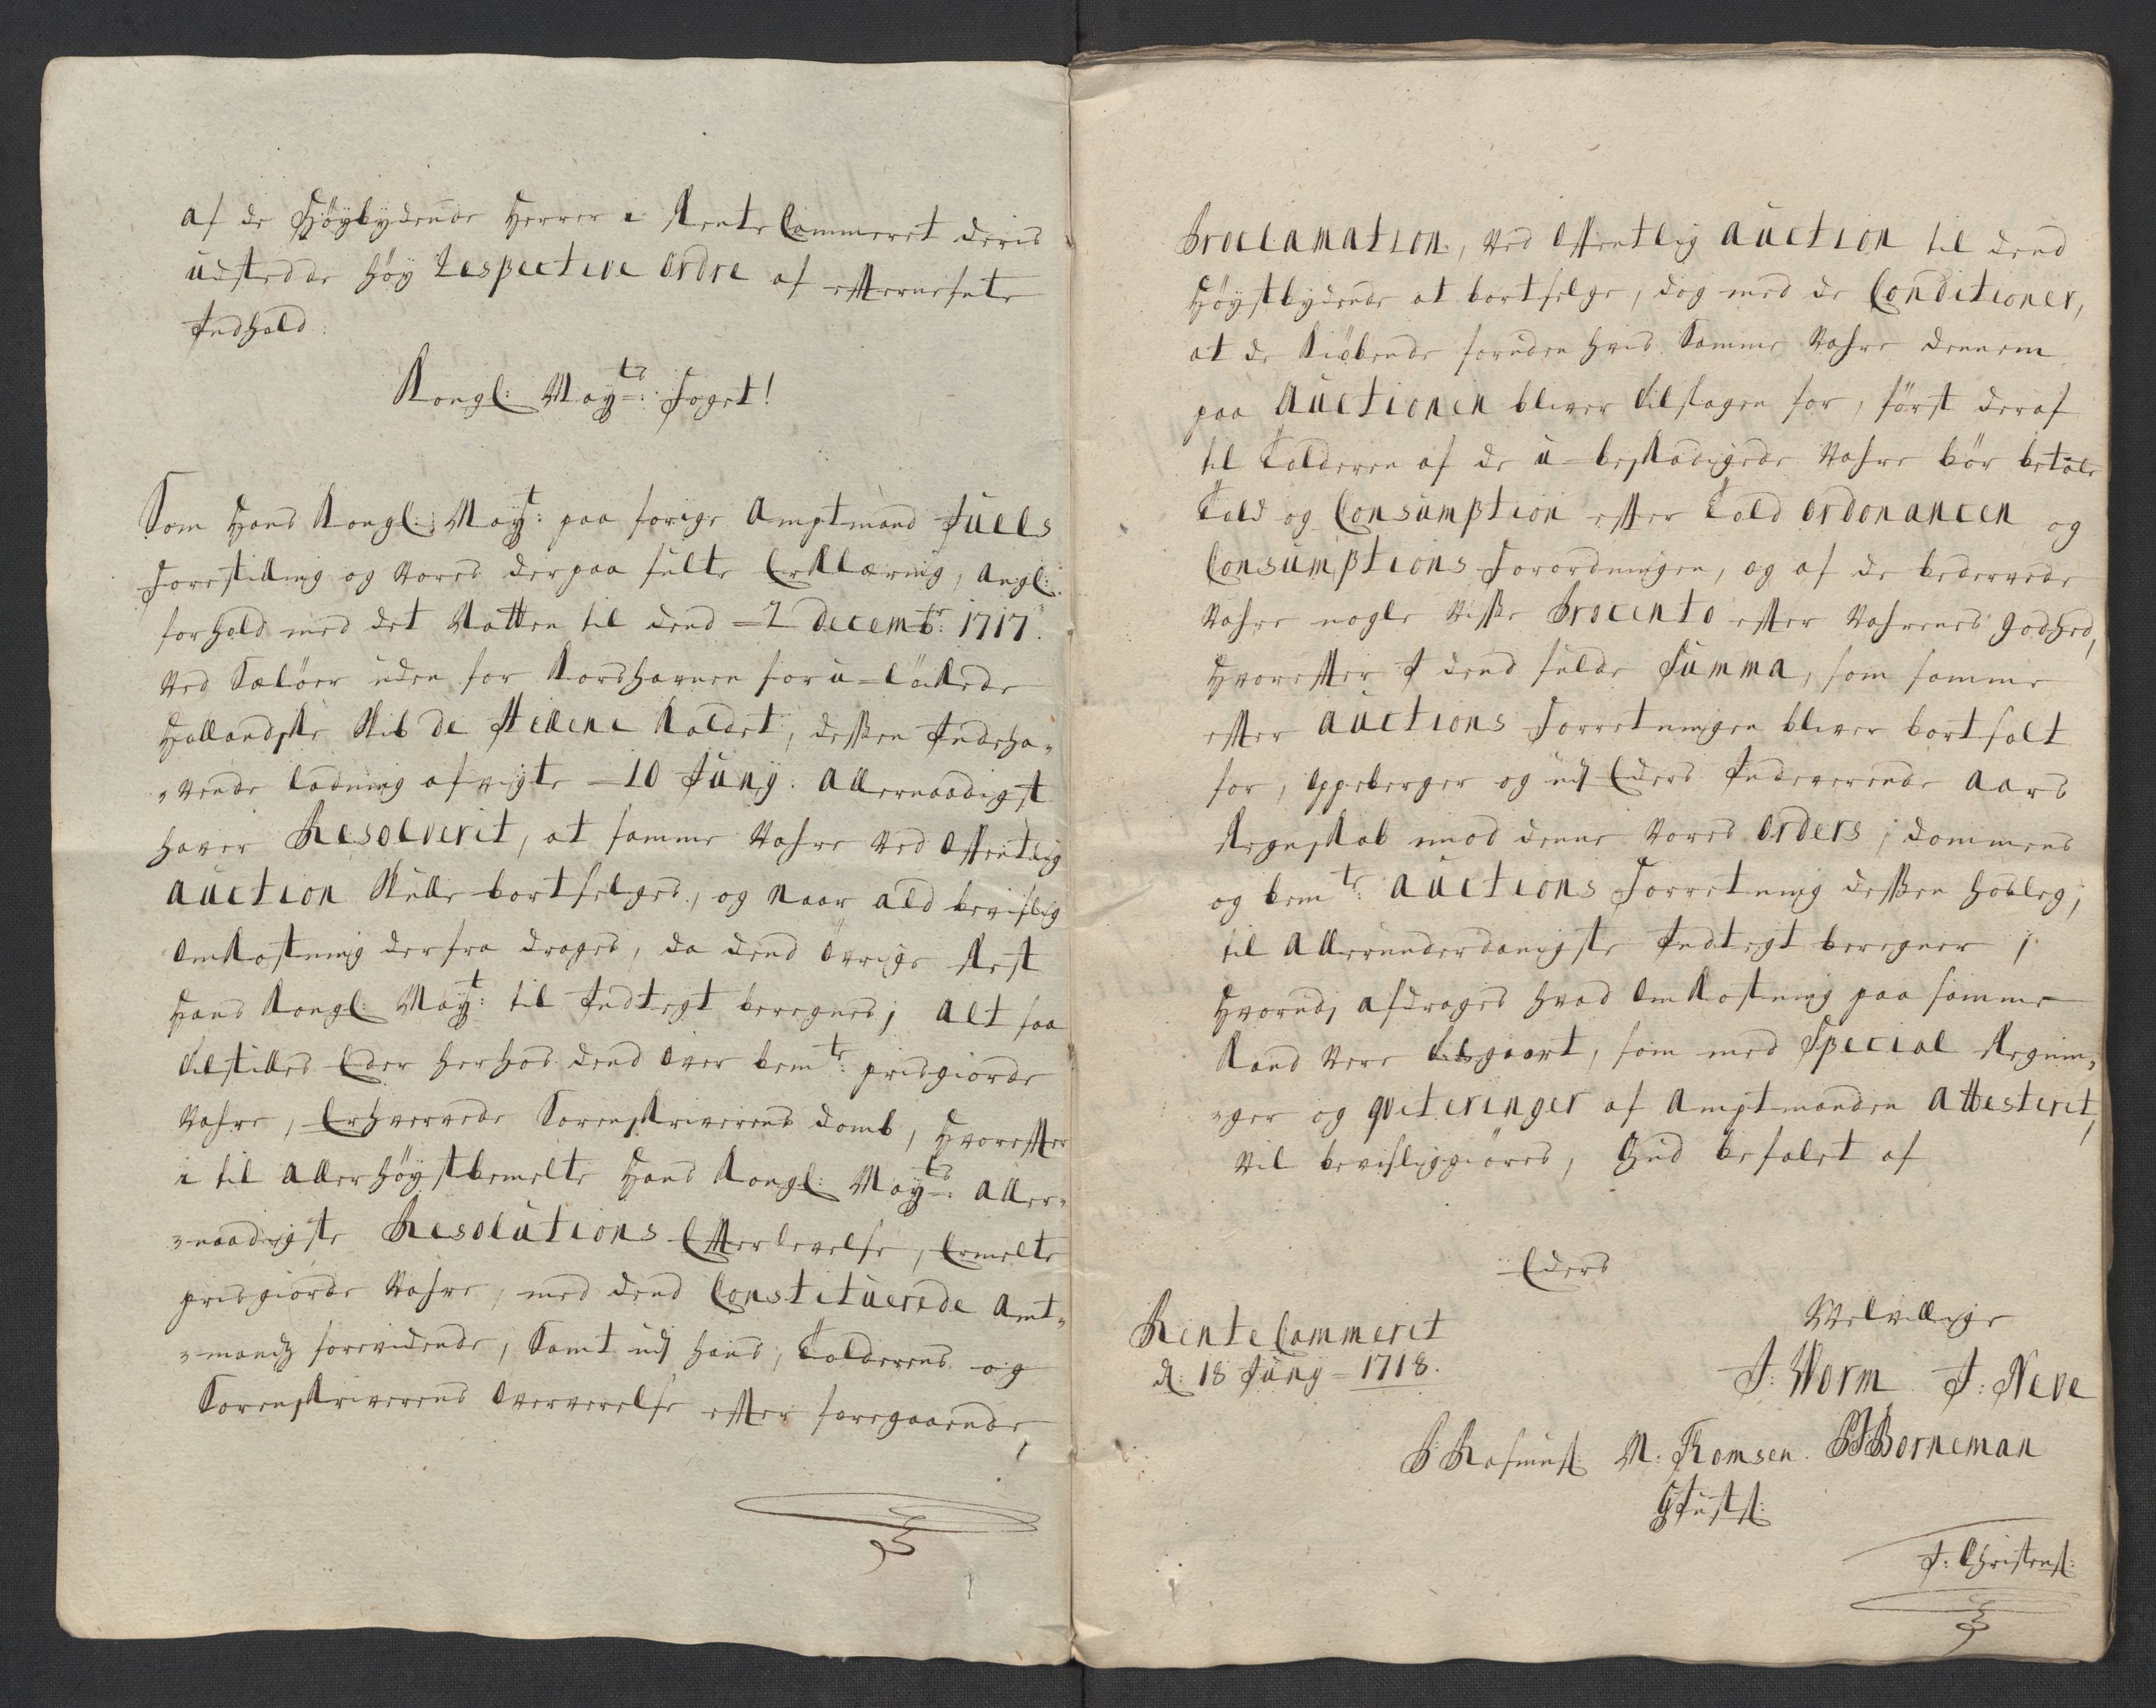 af de Höybydende Herrer i Rente Cammeret deris
udstedde höy respective Ordre af effternefnte
Indhold:
Kongl: May:ts Foget!
Som Hans Kongl: May:t paa forige Amptmand Juels
Forestilling og Vores derpaa fulte Erklæring, angl:
forhold med det Natten til dend 2 decembr: 1717.
ved Sælöer uden for Korshavnen foru-löckede
Hollandske Skib de Kaldet, dessen Indeha-
-vende ladning afvigte 10 Junÿ: Allernaadigst
haver Resolverit, at samme Vahre ved Offentlig
Auction Skulle bortselges, og naar ald bevislig
Omkostning derfra drages, da dend Övrige Rest
Hans Kongl: May:t til Indtegt beregnes; Alt saa
tilstilles Eder herhos dend over bem:te prisgiorde
Vahre, Erhvervede Sorenskriverens domb, Hvoreffter
i til Allerhöystbemelte Hans Kongl: May:ts Aller-
-naadigste Resolutions Effterlevelse, Ermelte
prisgiorde Vahre, med dend Constituerede Amt-
-mands forevidende, Samt udj hans, Tolderens og
Sorenskriverens Oververelse effter foregaaende
Proclamation, ved Offentlig Auction til dend
Höystbydende at bortselge, dog med de Conditioner,
at de Kiöbende foruden hvis Samme Vahre dennem
paa Auctionen bliver tilslagen for, först deraf
til Tolderen af de u-beskadigede Vahre bör betale
Told og Consumption effter Told Ordonancen og
Consumptions Forordningen, og af de bedervede
Vahre nogle visse Procento effter Vahrenes Godhed,
Hvoreffter I dend fulde Summa, som samme
effter Auctions Forretningen bliver bortsolt
for, Oppeberger og udj Eders Indeverende Aars
Regnskab imod denne Vores Orders, dommens
og bem:te Auctions Forretning dessen hosleg,
til Allerunderdanigste Indtegt beregner
Hvorudj afdrages hvad Omkostning paa samme
Kand vere giort, som med Special Regnin-
-ger og qviteringer af Amptmanden Attesterit,
vil bevisliggiöres, Gud befalet af
Eders
Velvillige
RenteCammerit
d: 18 Juny 1718.
J: Worm J: Neve
P Rasmus: M: Romsen. Borneman
J: Christens: